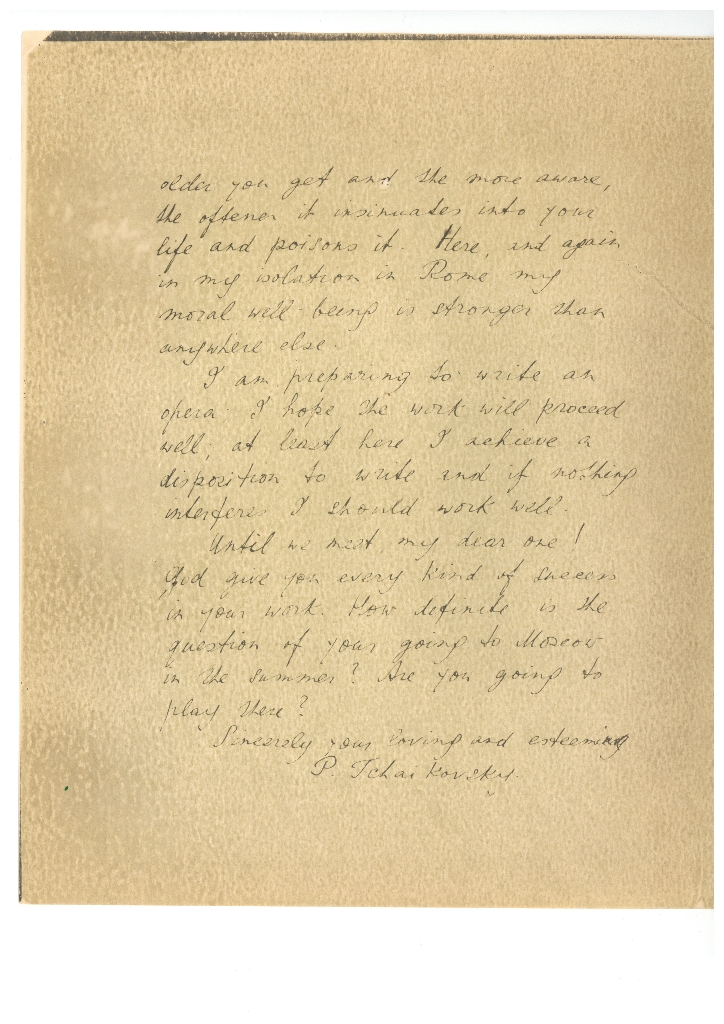 older you get and the more aware,
the oftener it insinuates into your
life and poisons it. Here, and again
in my isolation in Rome my
moral well-being is stronger than
anywhere else.
I am preparing to write an
opera. I hope the work will proceed
well; at least here I achieve a
disposition to write and if nothing
interferes I should work well.
Until we meet, my dear one!
God give you every kind of success
in your work. How definite is the
question of your going to Moscow
in the summer? Are you going to
play there?
Sincerely your loving and esteeming
P. Tchaikovsky.